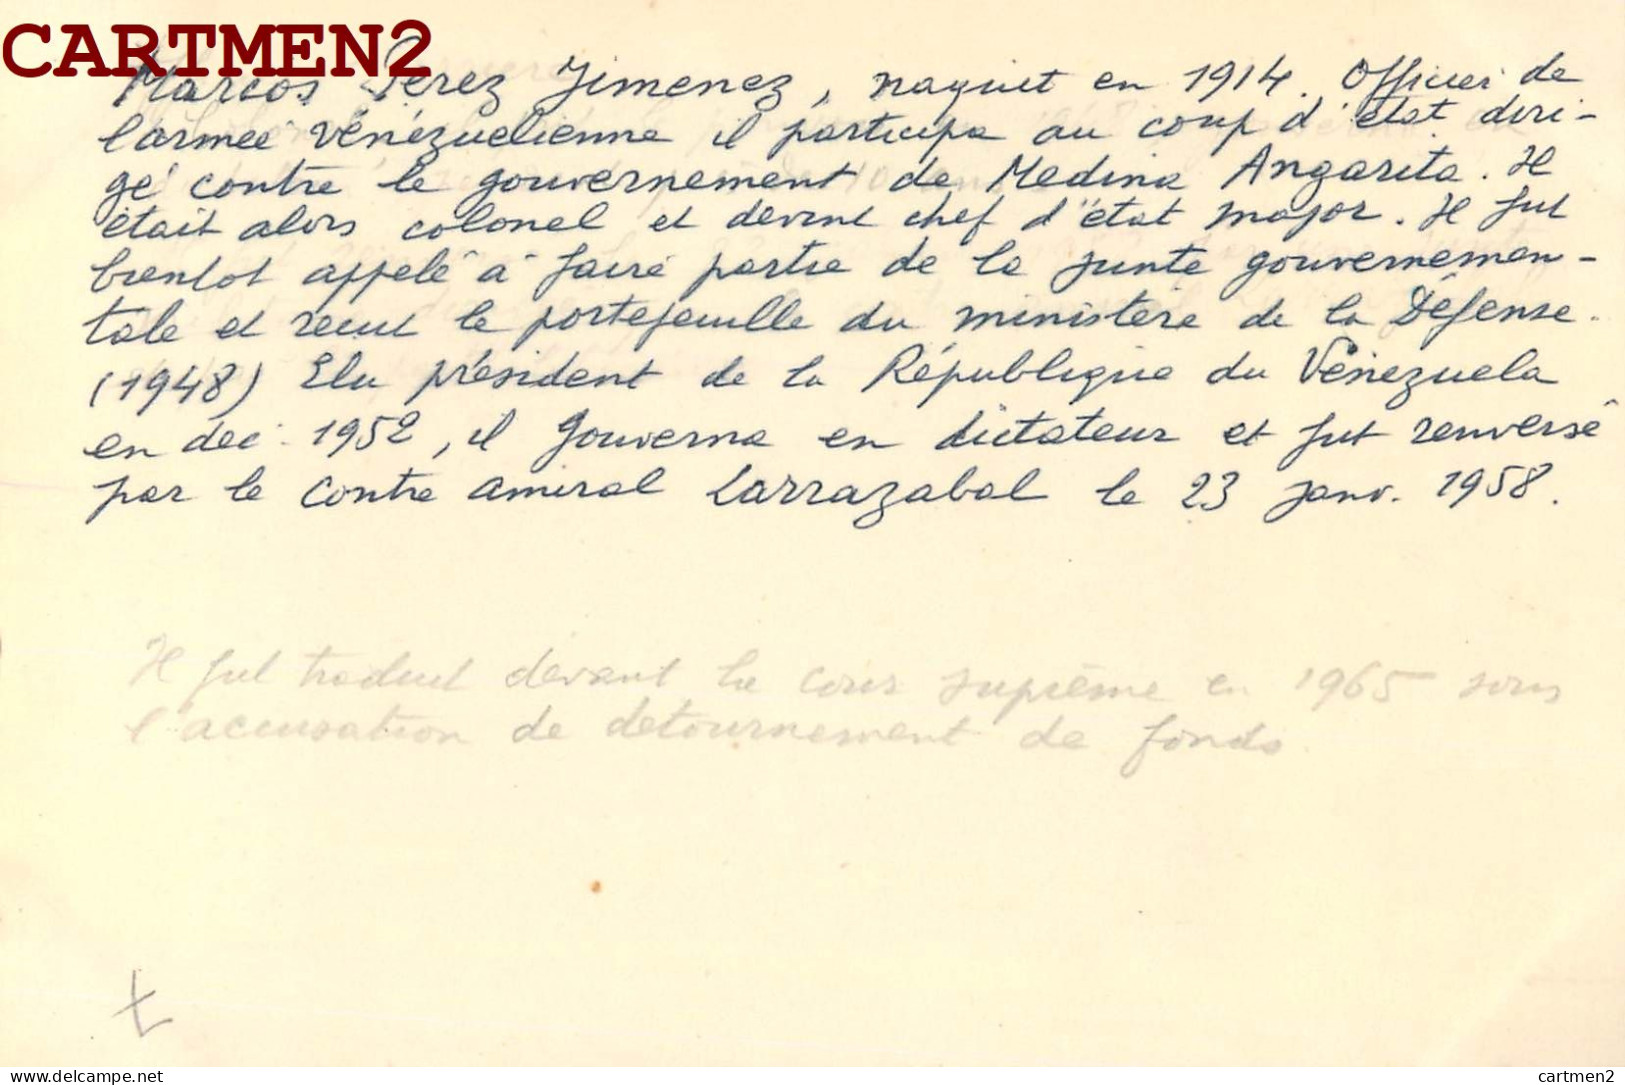 CARTMEN2
Marcos Perez Jimenez, naquit en 1914. Officier de
l'armée vénézuelienne il participa au coup d'état diri-
gé contre le gouvernement de Medina Angarita. Il
était alors colonel et devint chef d'état major. Il fut
bientot appelé à faire partie de la junte gouvernemen-
tale et recut le portefeuille du ministère de la Défense.
(1948) Elu président de la République du Vénézuela
en dec. 1952, il gouverna en dictateur et fut renversé
par le contre amiral Larrazabal le 23 janv. 1958.
Il fut traduit devant la cour suprème en 1965 sous
l'accusation de detournement de fonds
delcampe.net
cartmen2